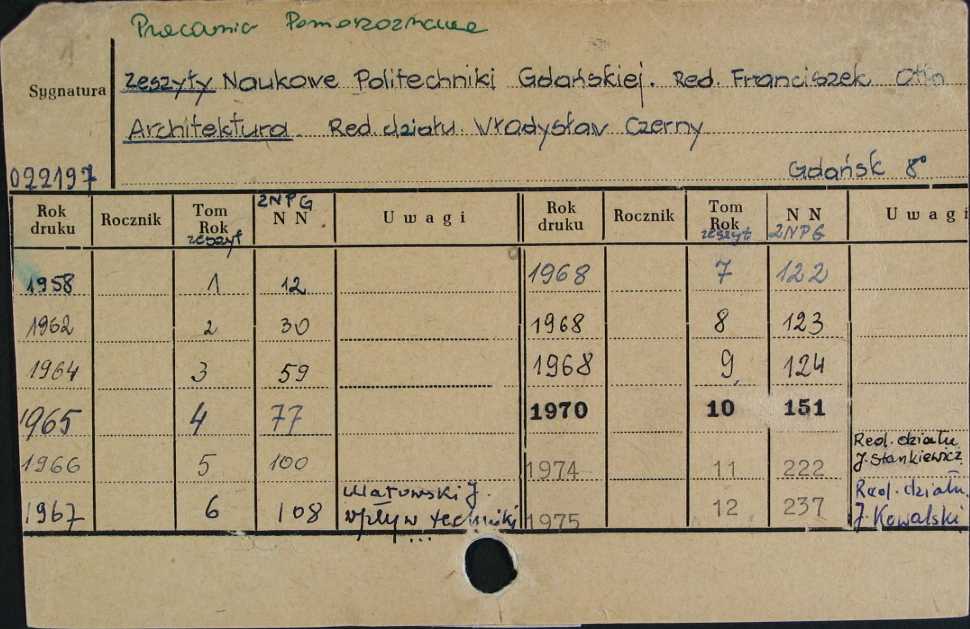 Pracownia Pomorzoznawcza
Sygnatura
Zeszyty Naukowe Politechniki Gdańskiej. Red. Franciszek Otto
Architektura. Red. działu Władysław Czerny
Gdańsk 8°
092197
Rok druku Rocznik Tom Rok zeszyt ZNPG N N Uwagi Rok druku Rocznik Tom Rok zeszyt N N ZNPG Uwagi
1958 1 12 1968 7 122
1962 2 30 1968 8 123
1964 3 59 1968 9 124
1965 4 77 1970 10 151
1966 5 100 1974 11 222 Red. działu J. Stankiewicz
1967 6 108 J. Wpływ techniki ... 1975 12 237 Red. działu J. Kowalski